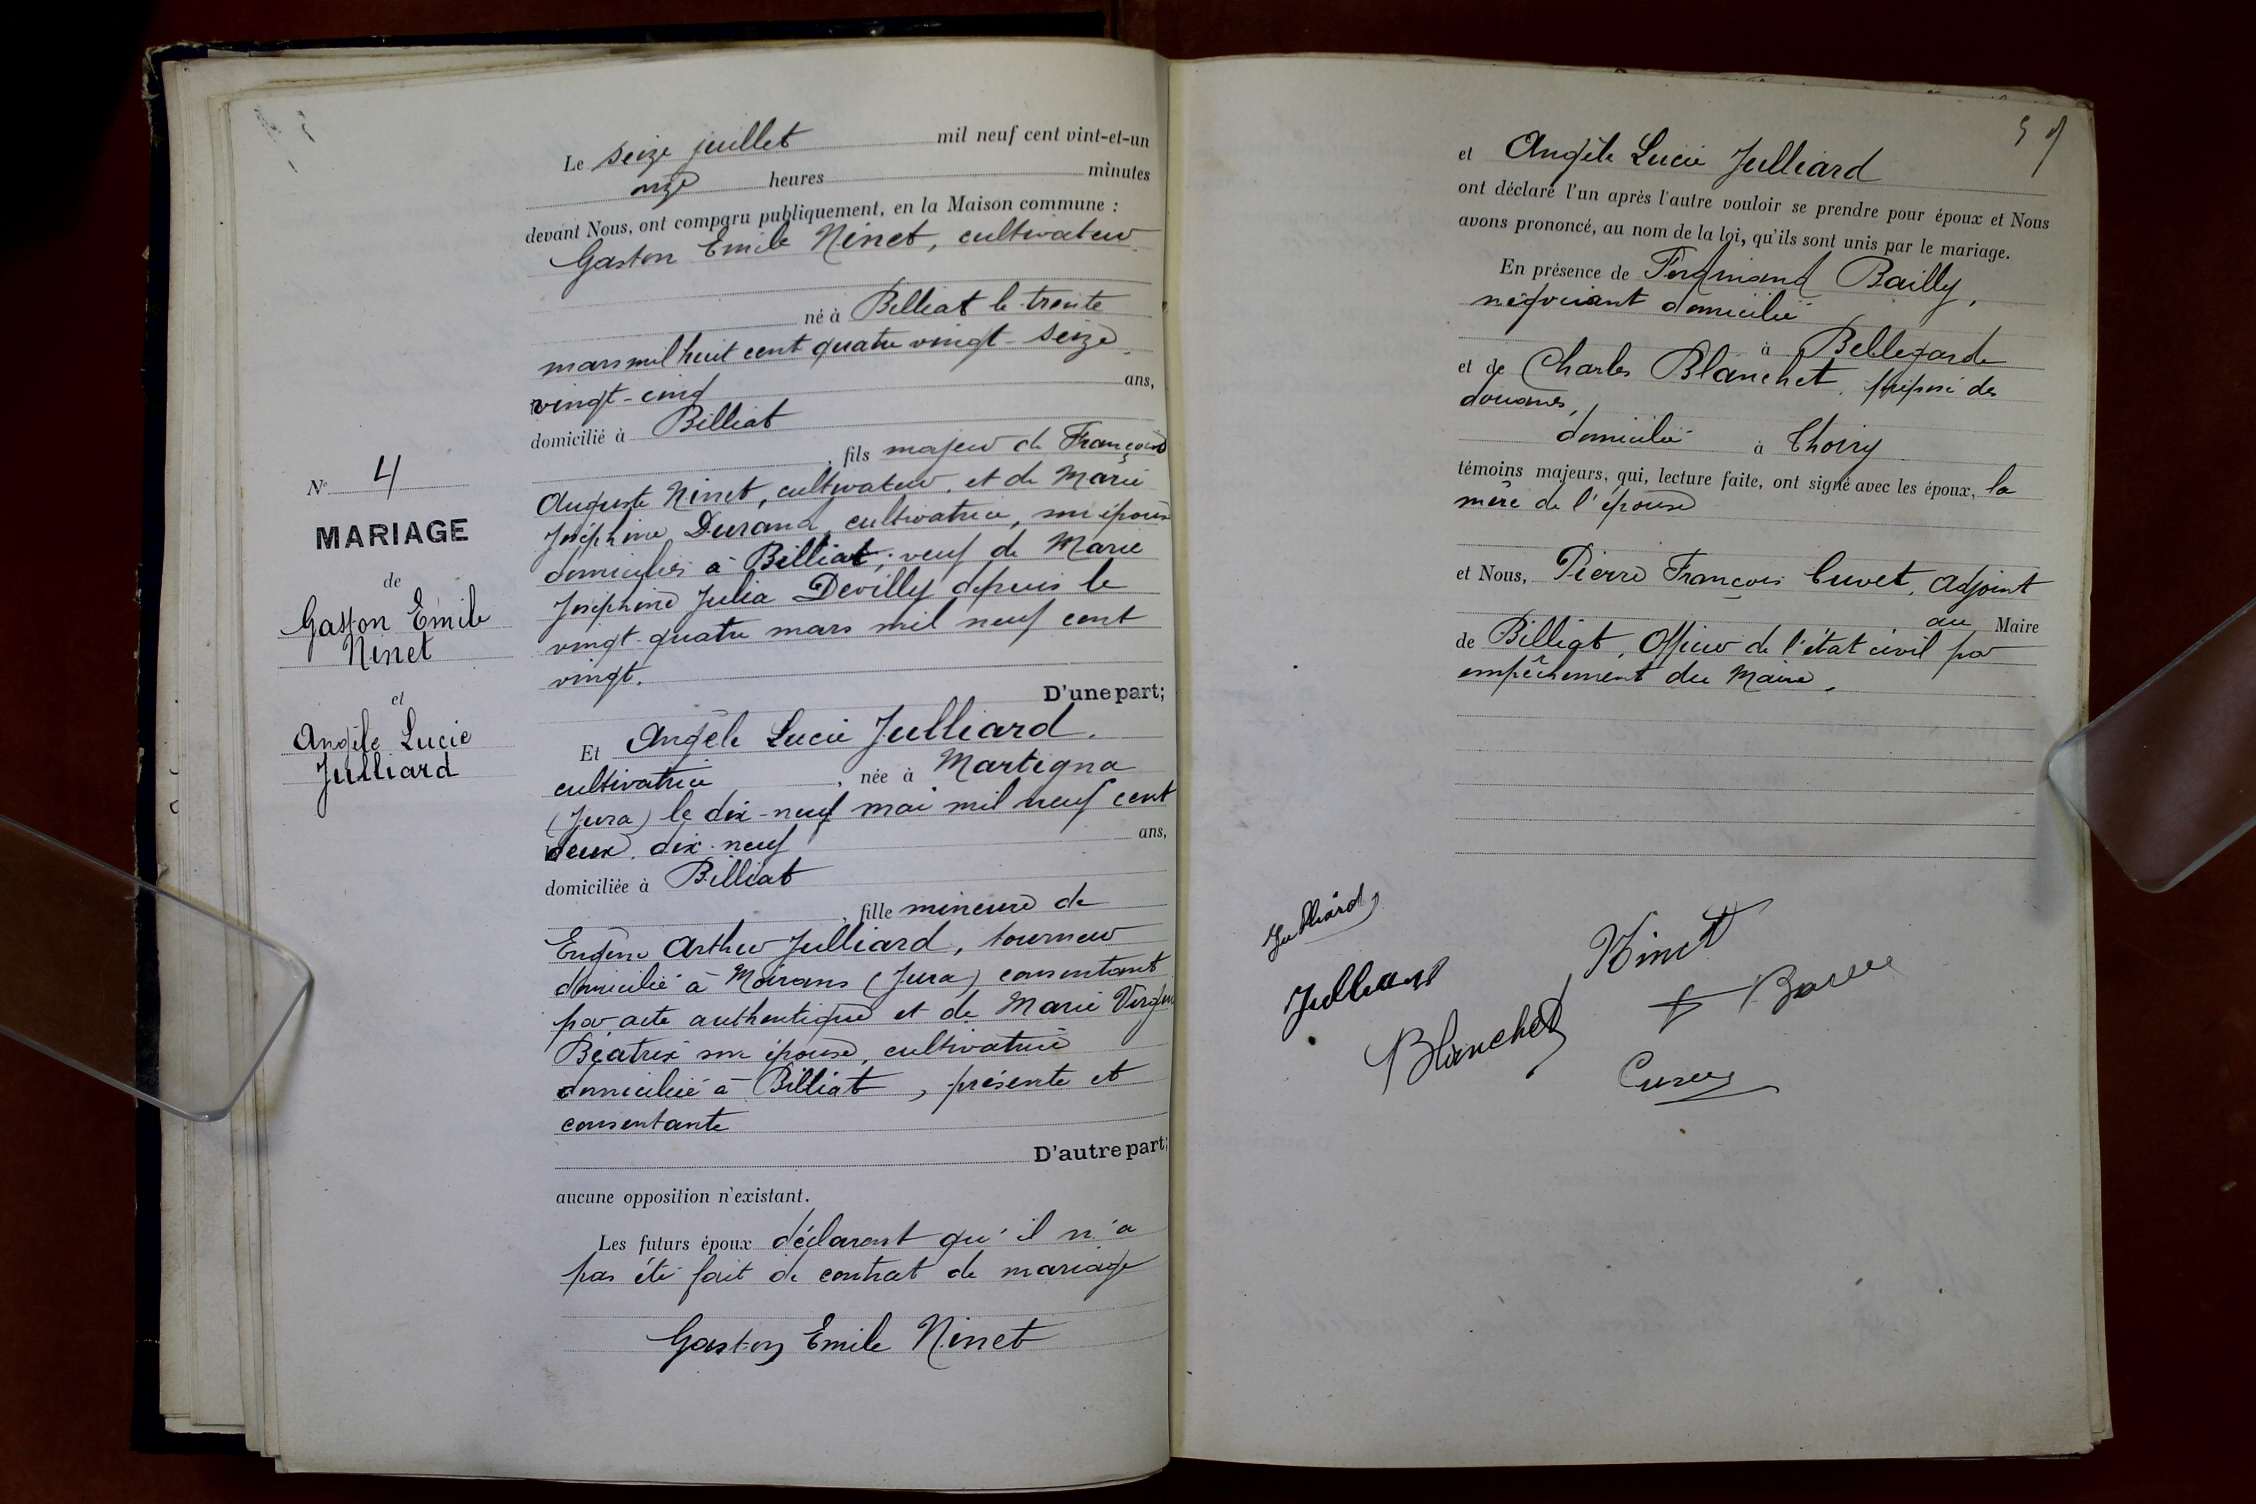 N° 4
MARIAGE
de
Gaston Emile
Ninet
et
Angèle Lucie
Julliard
Le seize juillet mil neuf cent vint-et-un
onze heures minutes
devant Nous, ont comparu publiquement, en la Maison commune :
Gaston Emile Ninet, cultivateur
né à Billiat le trente
mars mil huit cent quatre vingt-seize,
vingt-cinq ans,
domicilié à Billiat
, fils majeur de François
Auguste Ninet, cultivateur, et de Marie
Joséphine Durand, cultivatrice, son épouse
domiciliés à Billiat; veuf de Marie
Joséphine Julia Devilly depuis le
vingt-quatre mars mil neuf cent
vingt.
D'une part;
Et Angèle Lucie Julliard,
cultivatrice, née à Martigna
(Jura) le dix-neuf mai mil neuf cent
deux, dix-neuf ans,
domiciliée à Billiat
, fille mineure de
Eugène Arthur Julliard, tourneur
domicilié à Moirans (Jura) consentant
par acte authentique et de Marie
Béatrix son épouse, cultivatrice
domiciliée à Billiat, présente et
consentante
D'autre part;
aucune opposition n'existant.
Les futurs époux déclarent qu'il n'a
pas été fait de contrat de mariage
Gaston Emile Ninet
et Angèle Lucie Julliard
ont déclaré l'un après l'autre vouloir se prendre pour époux et Nous
avons prononcé, au nom de la loi, qu'ils sont unis par le mariage.
En présence de Ferdinand Bailly,
négociant domicilié
à Bellegarde
et de Charles Blanchet, préposé des
douanes,
domicilié à Thoiry
témoins majeurs, qui, lecture faite, ont signé avec les époux, la
mère de l'épouse
et Nous, Pierre François Cuvet, adjoint
au Maire
de Billiat, Officier de l'état civil par
empêchement du Maire.
Julliard
Julliard
Ninet
Blanchet